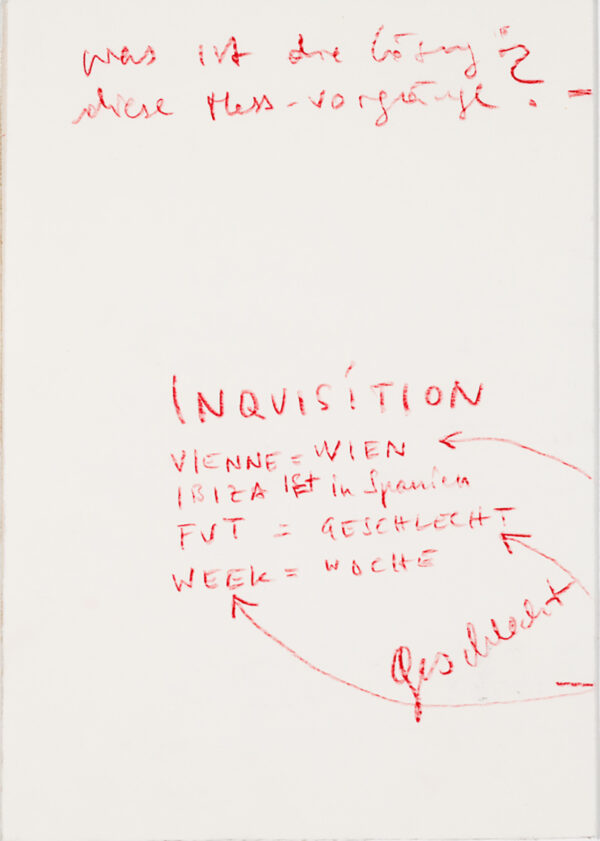 was ist die Lösung ?
diese Mess-vorgänge. -
INQUISITION
VIENNE = WIEN
IBIZA ISt in Spanien
FUT = GESCHLECHT
WEEK = WOCHE
Geschlecht